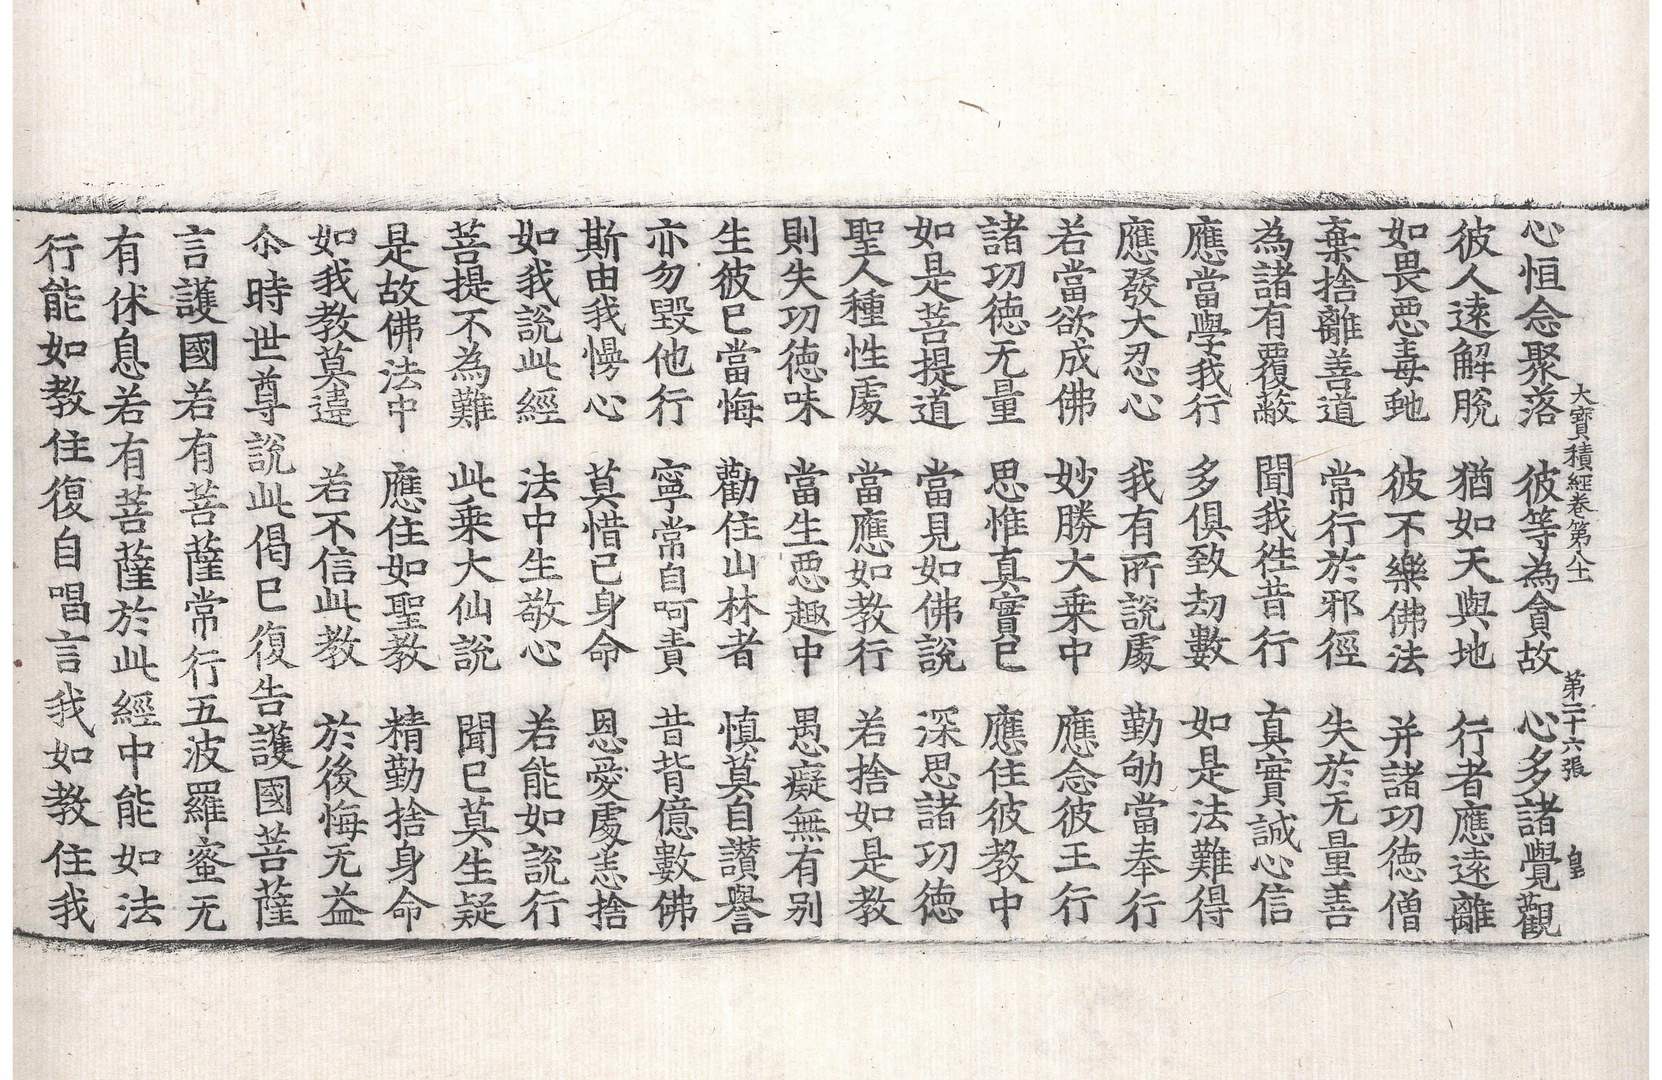 大寶積經卷第八十一 第二十六張 皇
心恒念聚落 彼等為貪故 心多諸覺觀
彼人遠解脫 猶如天與地 行者應遠離
如畏惡毒虵 彼不樂佛法 并諸功德僧
棄捨離善道 常行於邪徑 失於无量善
為諸有覆蔽 聞我徃昔行 真實誠心信
應當學我行 多俱致劫數 如是法難得
應發大忍心 我有所說處 勤劬當奉行
若當欲成佛 妙勝大乗中 應念彼王行
諸功德无量 思惟真實已 應住彼教中
如是菩提道 當見如佛說 深思諸功德
聖人種性處 當應如教行 若捨如是教
則失功德味 當生惡趣中 愚癡無有别
生彼已當悔 勸住山林者 慎莫自讃譽
亦勿毀他行 寧常自呵責 昔皆億數佛
斯由我慢心 莫惜己身命 恩愛處恚捨
如我說此經 法中生敬心 若能如說行
菩提不為難 此乗大仙說 聞已莫生疑
是故佛法中 應住如聖教 精勤捨身命
如我教莫違 若不信此教 於後悔无益
尒時世尊說此偈已復告護國菩薩
言護國若有菩薩常行五波羅蜜无
有休息若有菩薩於此經中能如法
行能如教住復自唱言我如教住我